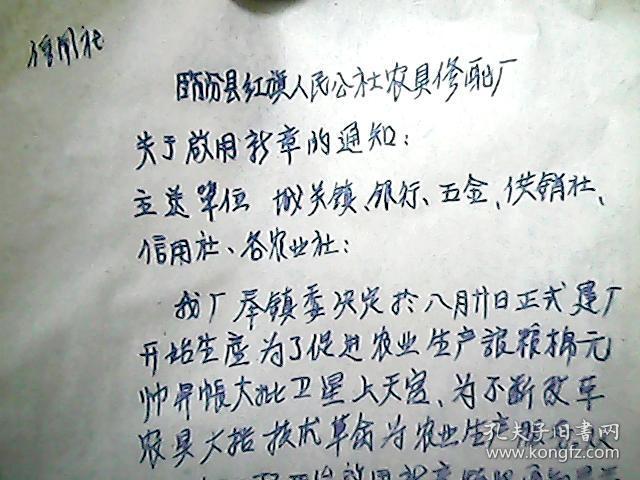 信用社
临汾县红旗人民公社农具修配厂
关于启用新章的通知：
主送单位 城关镇、银行、五金、供销社、
信用社、各农业社：
我厂奉镇委决定於八月廿日正式建厂
开始生产为了促进农业生产让粮棉元
帅昇帐大批卫星上天宫、为不断改革
农具大搞技术革命为农业生产服务
启用新章
孔夫子旧书网
www.kongfz.com